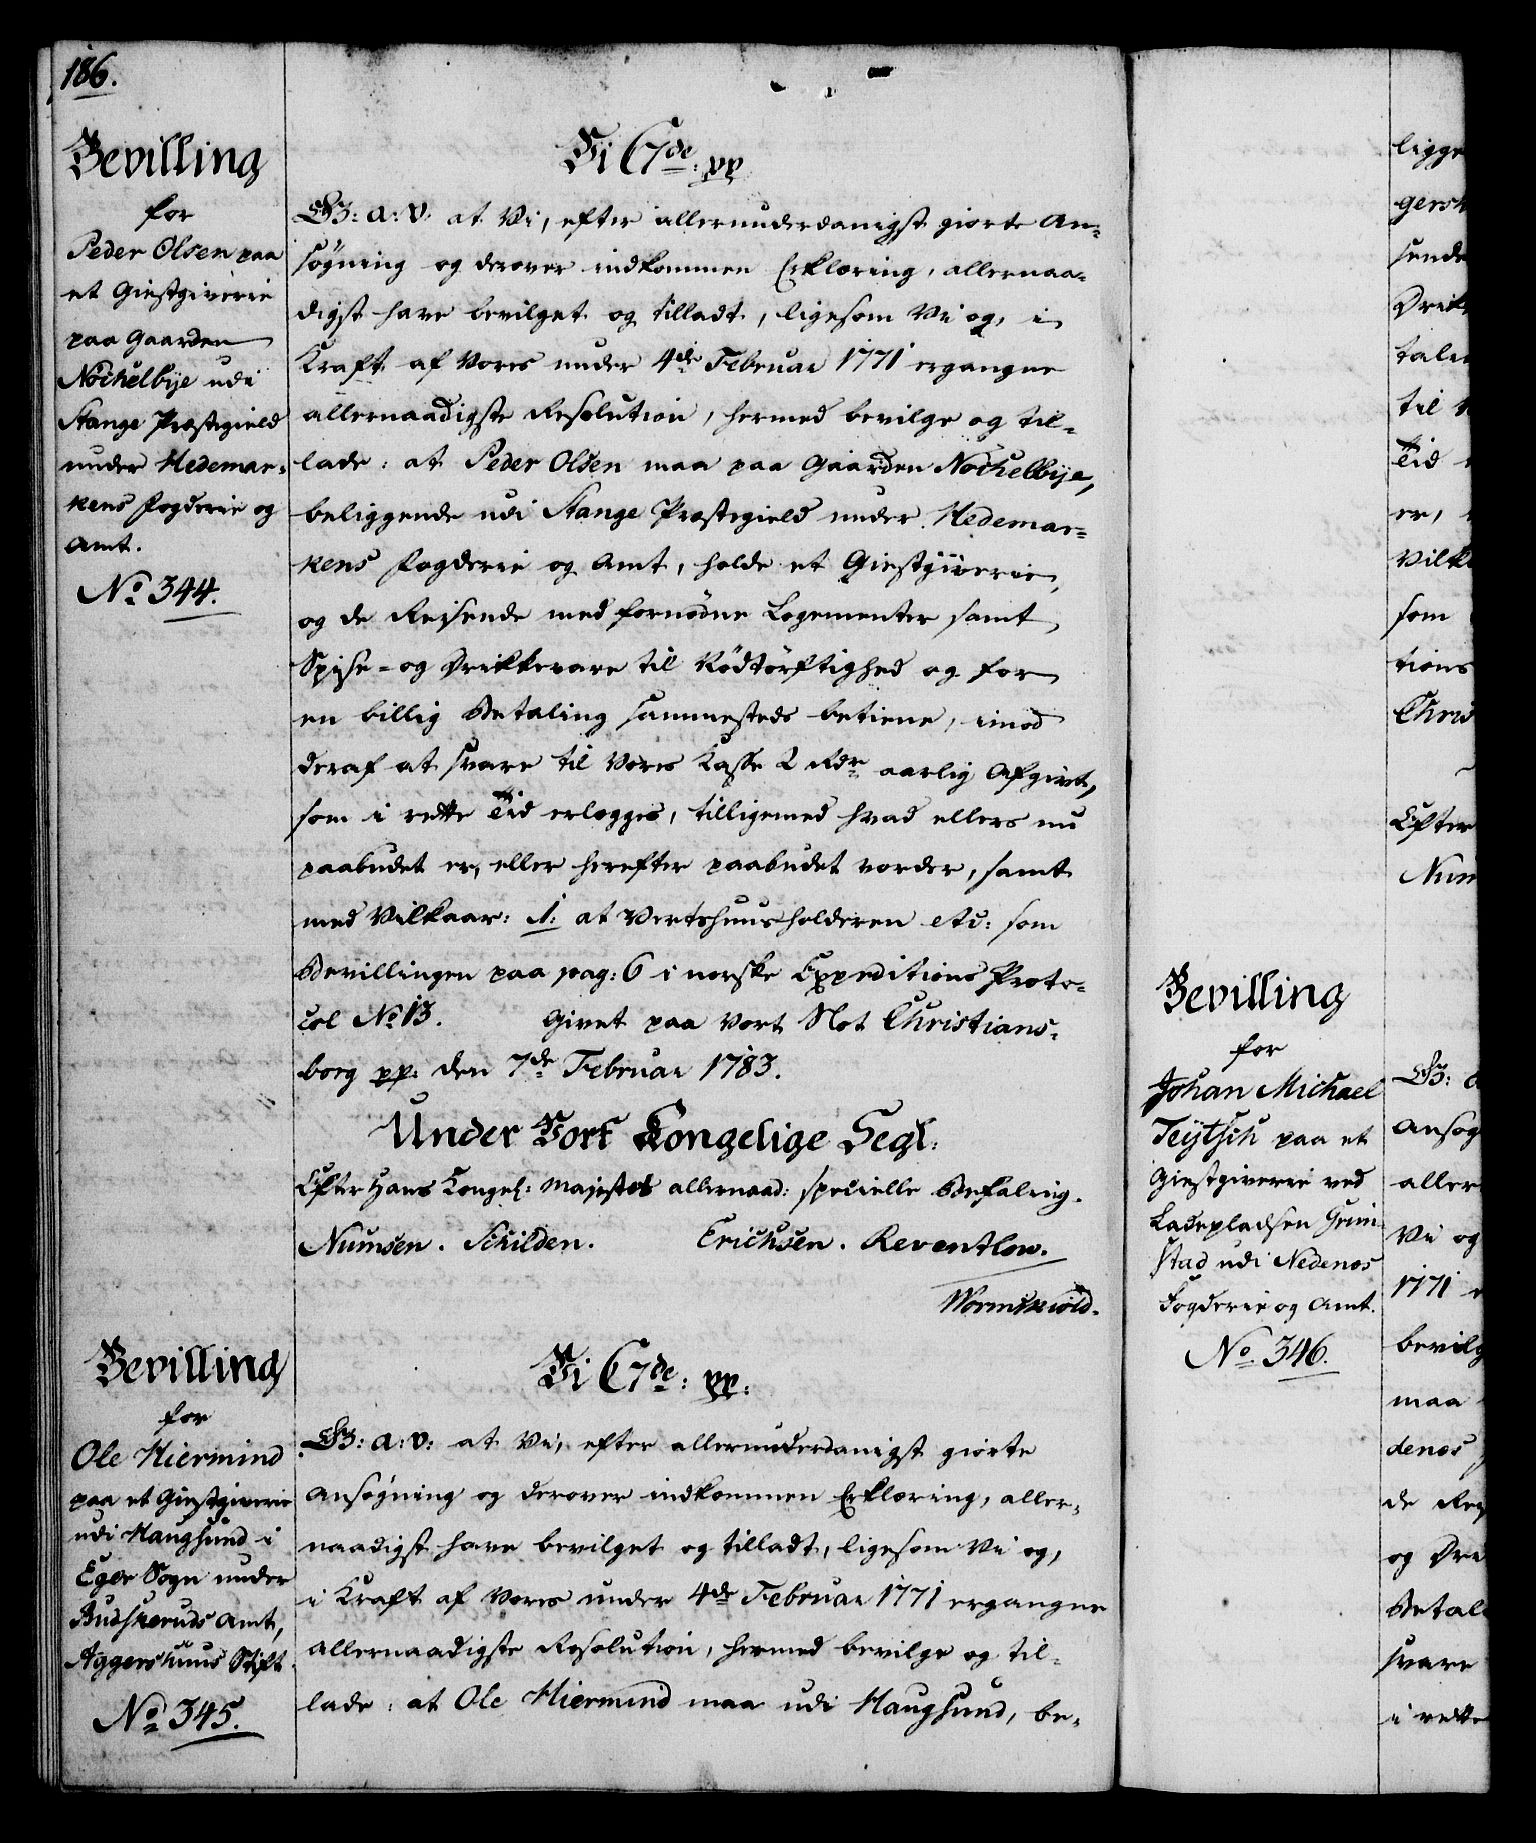 186.
Bevilling
for
Peder Olsen paa
et Giestgiverie
paa Gaarden
Nöckelbije udi
Stange Præstegield
under Hedemar-
kens Fogderie og
Amt.
No 344.
Vi C 7de: pp
G: a: v: at Vi, efter allerunderdanigst giorte An-
søgning og derover indkommen Erklæring, allernaa-
digst have bevilget og tilladt, ligesom Vi og, i
Kraft af Vores under 4de Februar 1771 ergangne
allernaadigste Resolution, hermed bevilge og til-
lade: at Peder Olsen maa paa Gaarden Nöckelbije,
beliggende udi Stange Præstegield under Hedemar-
kens Fogderie og Amt, holde et Giestgiverie,
og de Reisende med fornødne Logementer samt
Spise- og Drikkevare til Nödtörftighed og for
en billig Betaling sammesteds betiene, imod
deraf at svare til Vores Kasse 2 Rdr aarlig Afgivt,
som i rette Tid erlægges, tilligemed hvad ellers nu
paabudet er, eller herefter paabudet vorder, samt
med Vilkaar: 1: at Vertshuusholderen etc: som
Bevillingen paa pag: 6 i norske Expeditions Proto-
col No 13. Givet paa Vort Slot Christians-
borg pp: den 7de Februar 1783.
Under Vort Kongelige Segl:
Efter Hans Kongel: Majestæts allernaad: specielle Befaling.
Numsen. Schilden. Erichsen. Reventlow.
Wormskiold.
Bevilling
for
Ole Hiermind
paa et Giestgiverie
udi Haugsund i
Eger Sogn under
Budskeruds Amt,
Aggershuus Stift
No 345.
Vi C 7de: pp:
G: a: v: at Vi, efter allerunderdanigst giorte
Ansøgning og derover indkommen Erklæring, aller-
naadigst have bevilget og tilladt, ligesom Vi og,
i Kraft af Vores under 4de Februar 1771 ergangne
allernaadigste Resolution, hermed bevilge og til-
lade: at Ole Hiermind maa udi Haugsund, be-
Bevilling
for
Johan Michael
Teÿtsch paa et
Giestgiverie ved
Ladepladsen Grim-
stad udi Nedenæs
Fogderie og Amt.
No 346.
ligge
sende
Drik
til
Tid
er,
Vilk
som
tions
Chris
Efter
Num
Ansøg
aller
Vi og
1771
bevilg
maa
denæs
de Rey
og Dri
Betal
svare
i rette